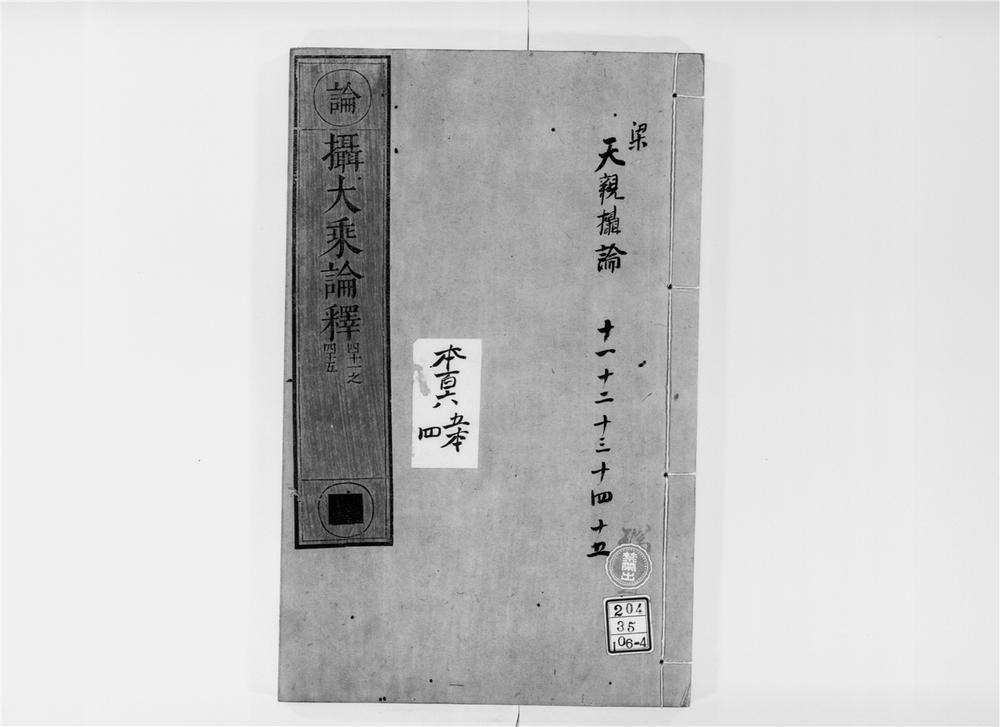 梁
天親攝論 十一十二十三十四十五
論
攝大乘論釋
四十一之
四十五
本百六
五本
四
禁帶出
204
35
106-4